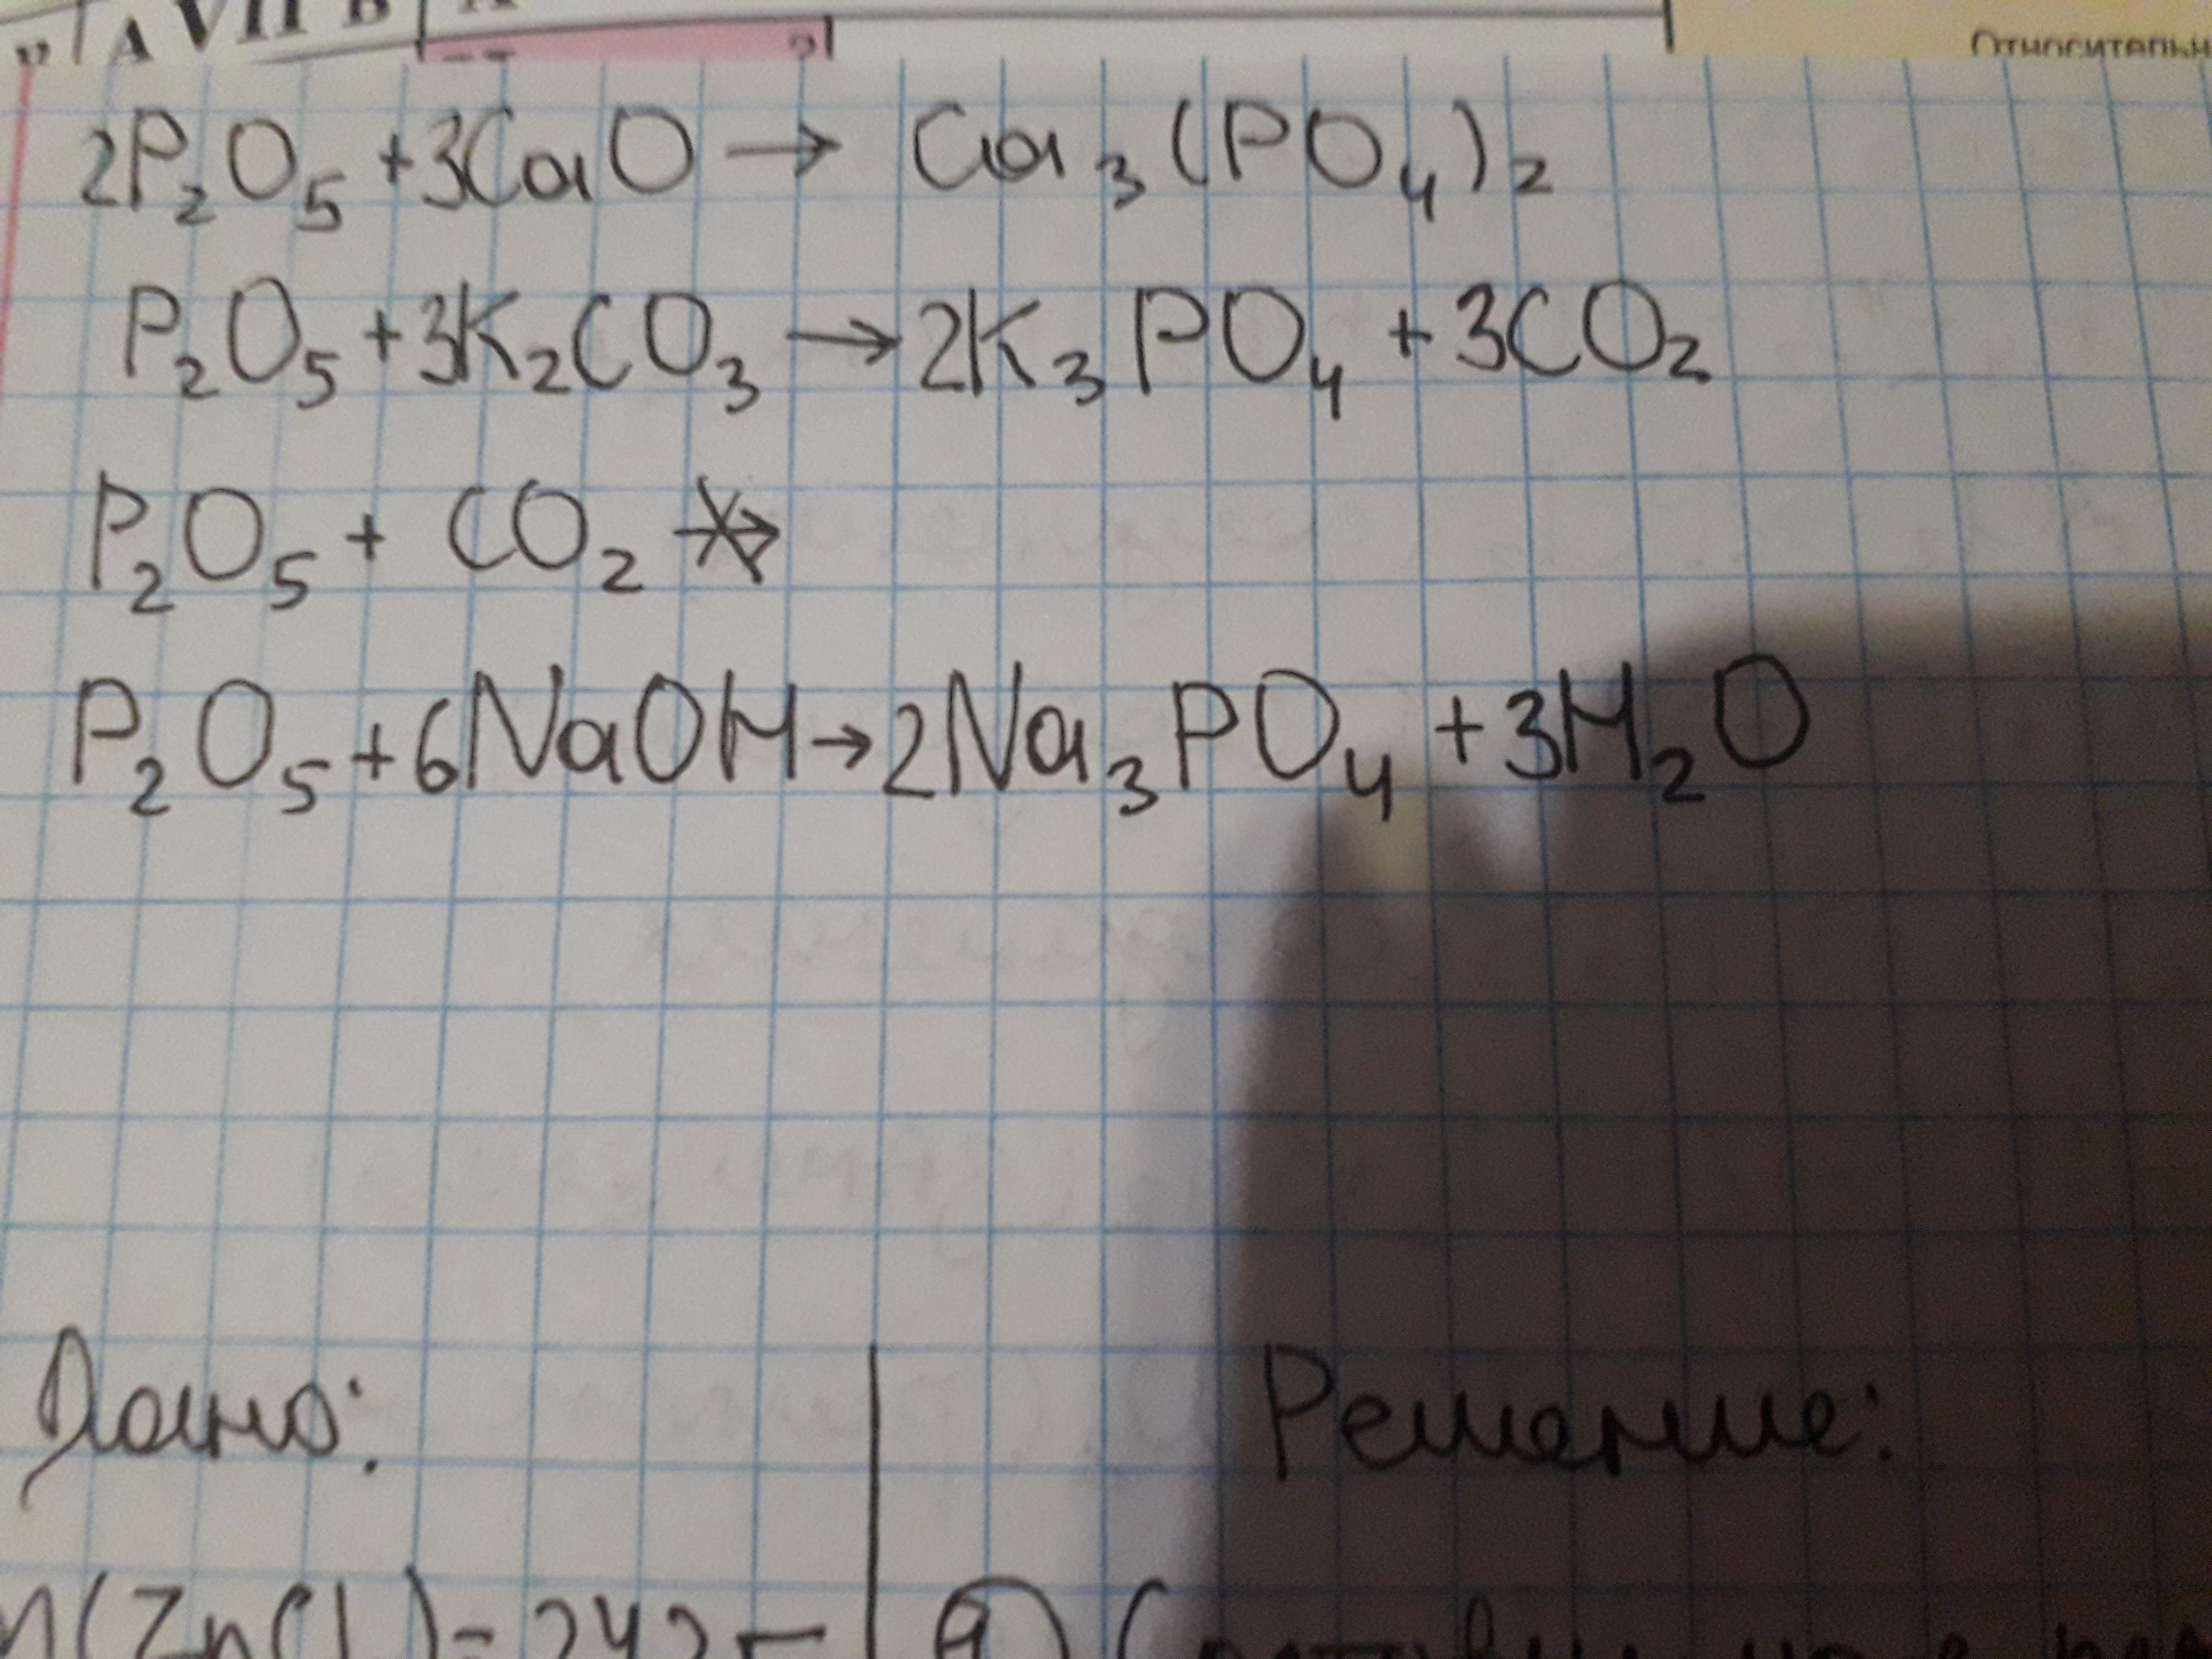 А VII В
Относительн
2P₂O₅ + 3CaO → Ca₃(PO₄)₂
P₂O₅ + 3K₂CO₃ → 2K₃PO₄ + 3CO₂
P₂O₅ + CO₂ ↛
P₂O₅ + 6NaOH → 2Na₃PO₄ + 3H₂O
Дано: Решение: